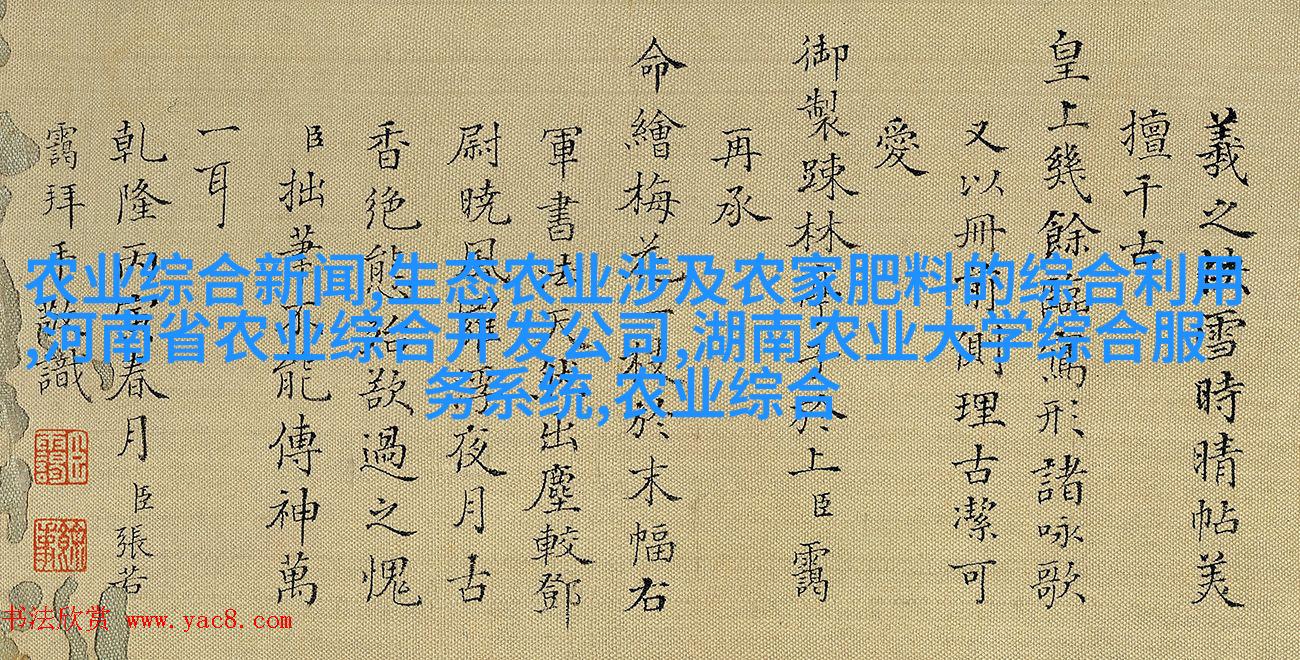 義之快雪時晴帖美
擅千古
皇上幾餘臨寫形諸詠歌
又以冊前側理古潔可
愛
御製踈林 於上臣靄
再承
命繪梅花一枝於末幅右
軍書法天然出塵較鄧
尉曉風羅浮夜月古
香絶態殆欲過之愧
臣拙筆不能傳神萬
一耳
乾隆丙寅春月臣張若
靄拜手敬識
农业综合新闻,生态农业涉及农家肥料的综合利用
,河南省农业综合开发公司,湖南农业大学综合服
务系统,农业综合
书法欣赏 www.yac8.com